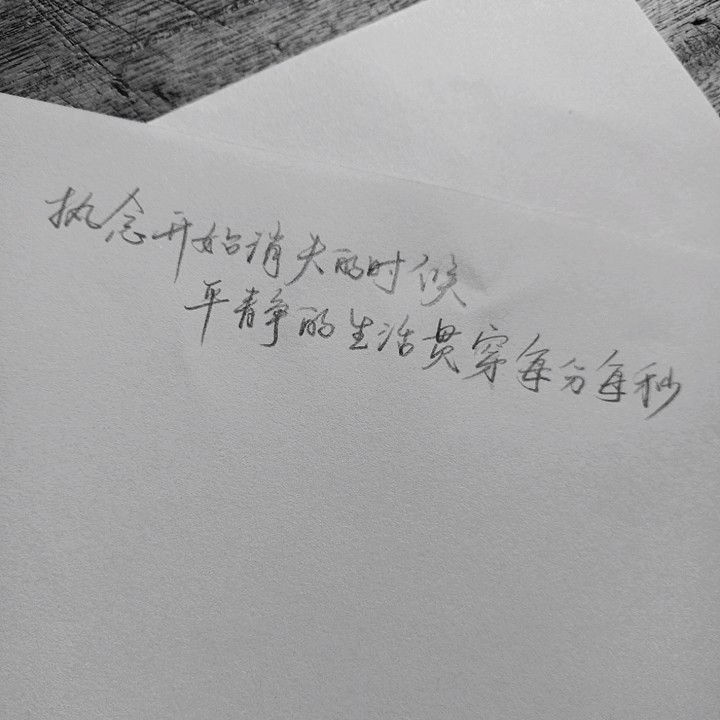 执念开始消失的时候
平静的生活贯穿每分每秒